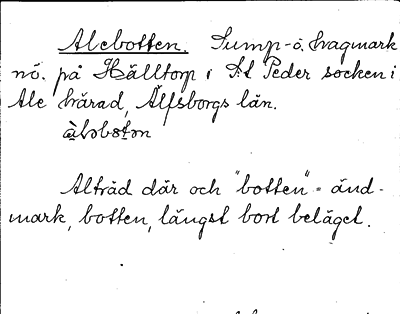 Alebotten. Sump- o. kragmark
nö. på Hälltorp i S:t Peder socken i
Ale härad, Älfsborgs län.
àləbɷtən
Alträd där och "botten" = änd-
mark, botten, längst bort beläget.